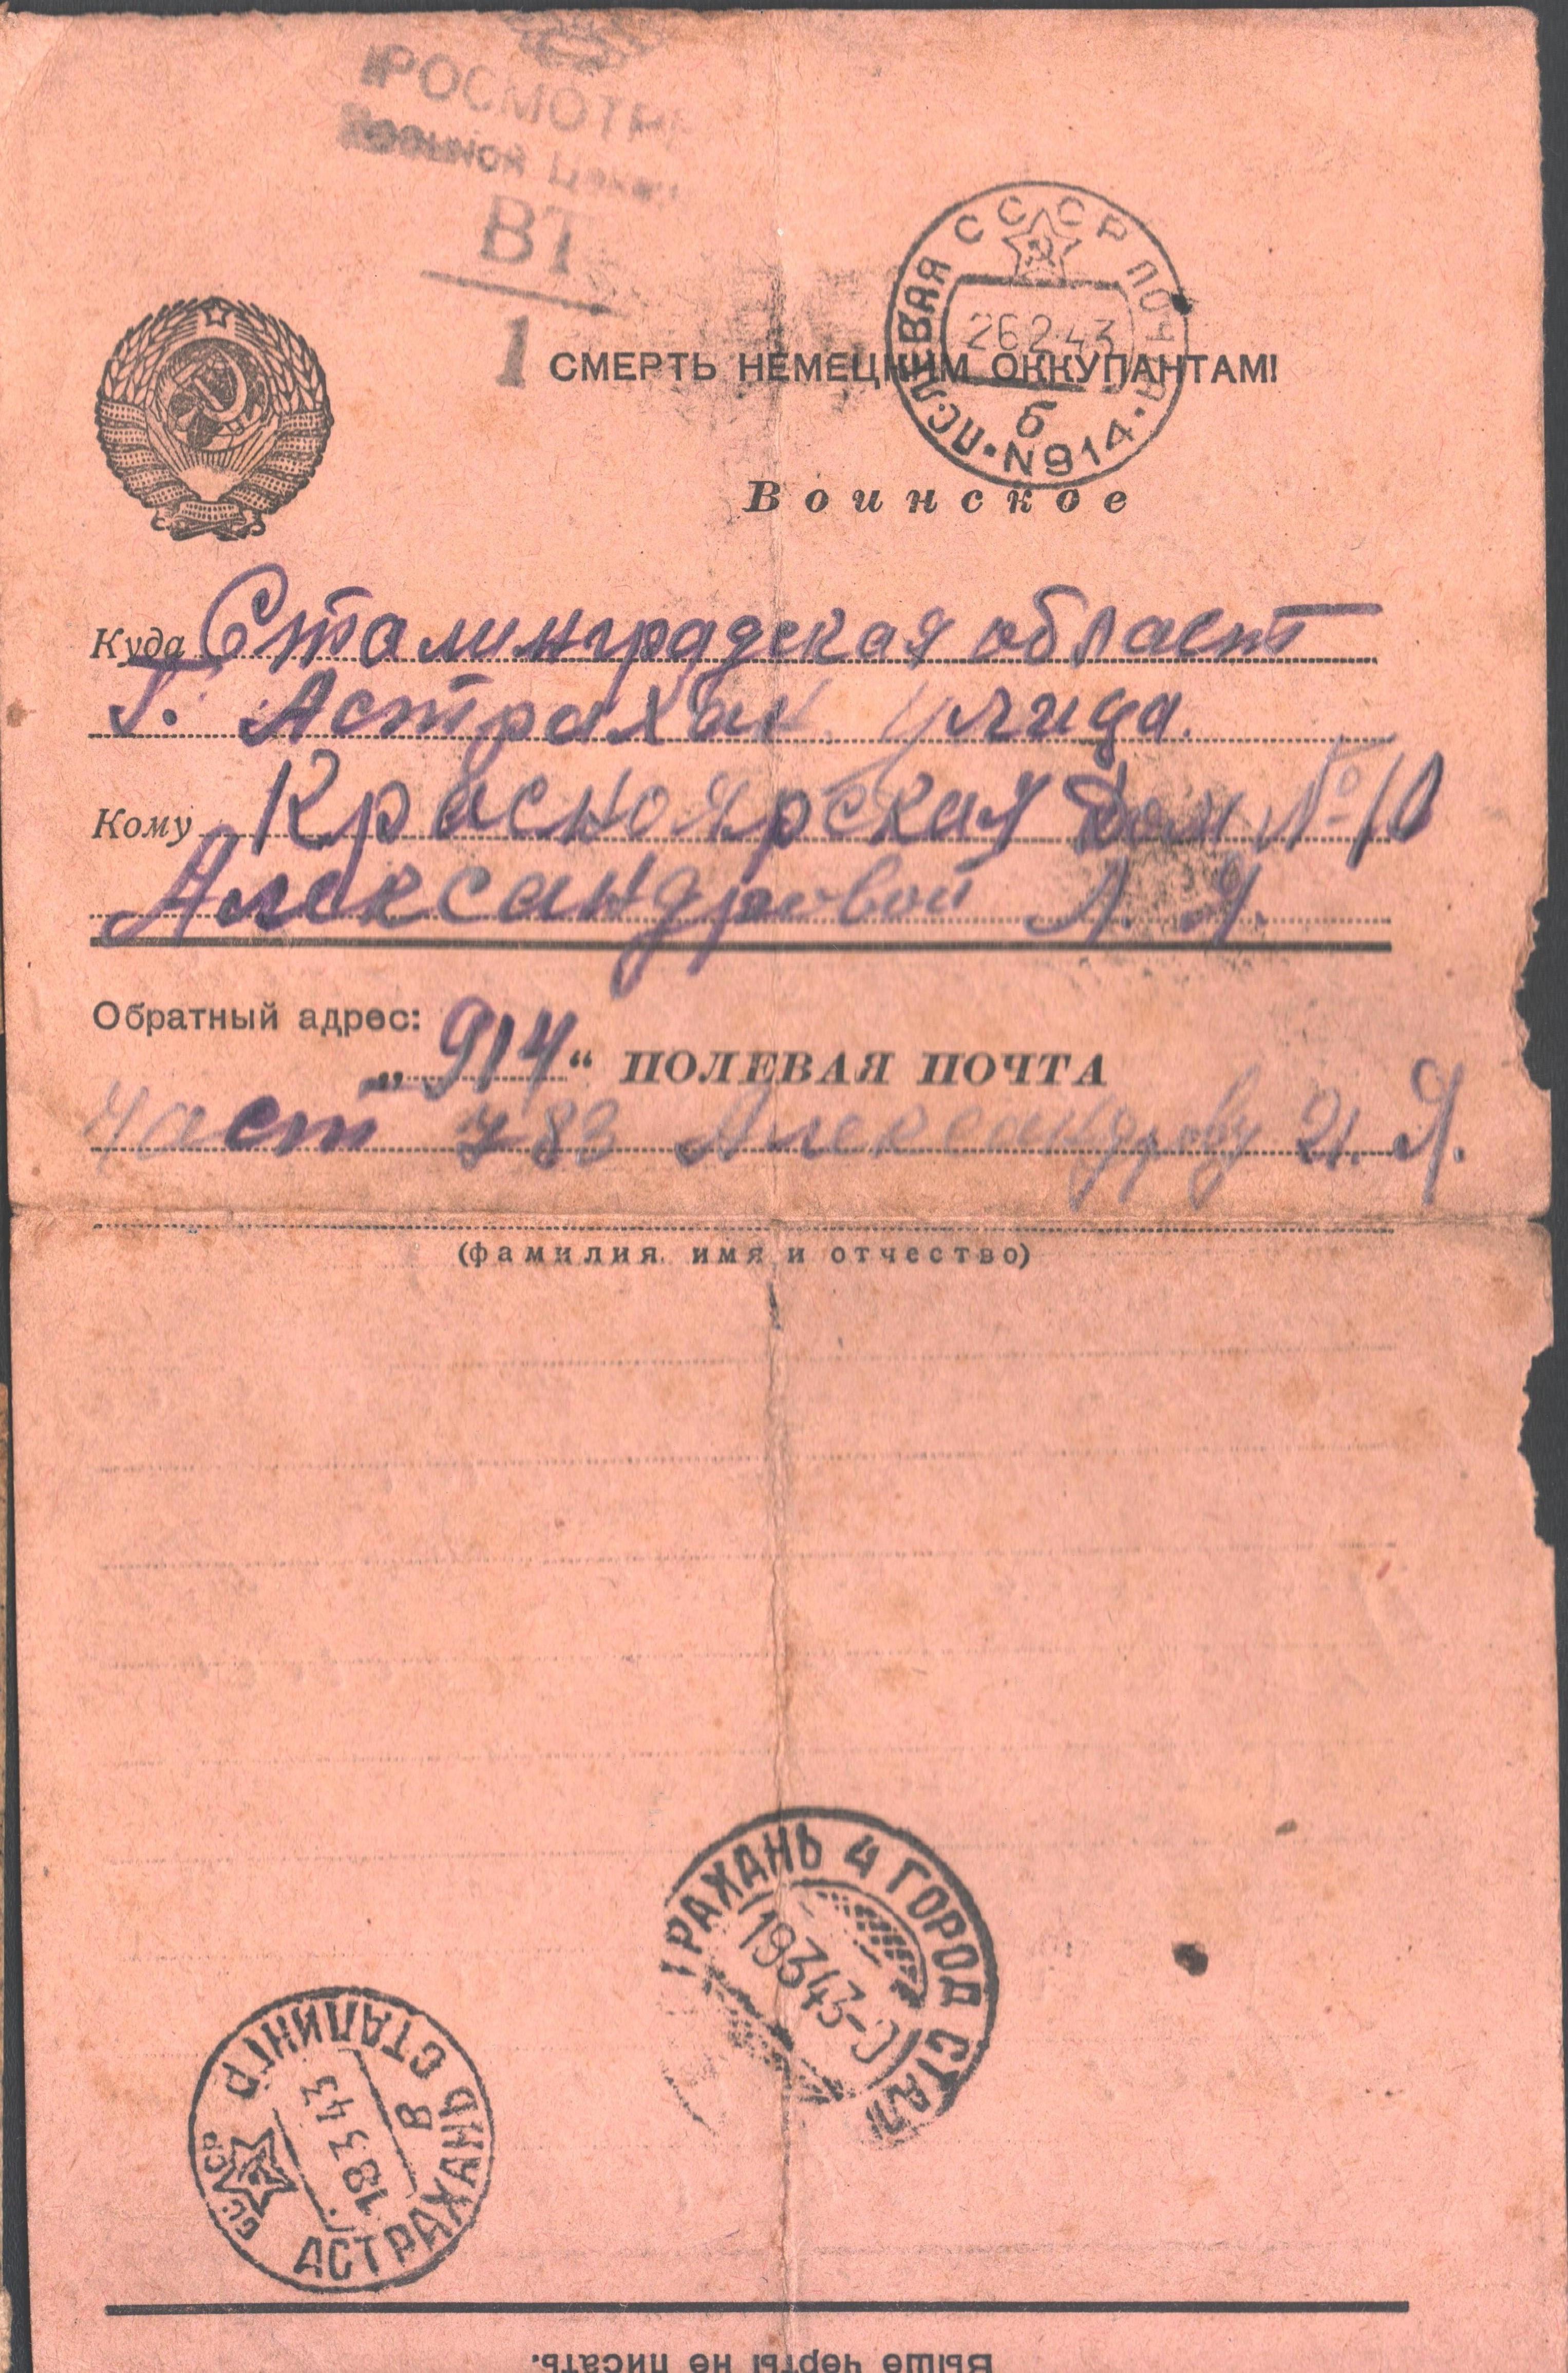 РОСМОТР
Военной Ценз
ВТ
1
СССР ПОЧТА
26 2 43
б
ПОЛЕВАЯ • N914 •
СМЕРТЬ НЕМЕЦКИМ ОККУПАНТАМ!
Воинское
Куда Сталинградская област
Г. Астрахан улица.
Кому Красноярская Дом № 10
Александровой А. Я.
Обратный адрес:
„914“ ПОЛЕВАЯ ПОЧТА
Част 783 Александрову И. Я.
(фамилия, имя и отчество)
ТРАХАНЬ 4 ГОРОД СТАЛ
19343
АСТРАХАНЬ 8 СТАЛИНГР
СССР
19 3 43
Выше черты не писать.